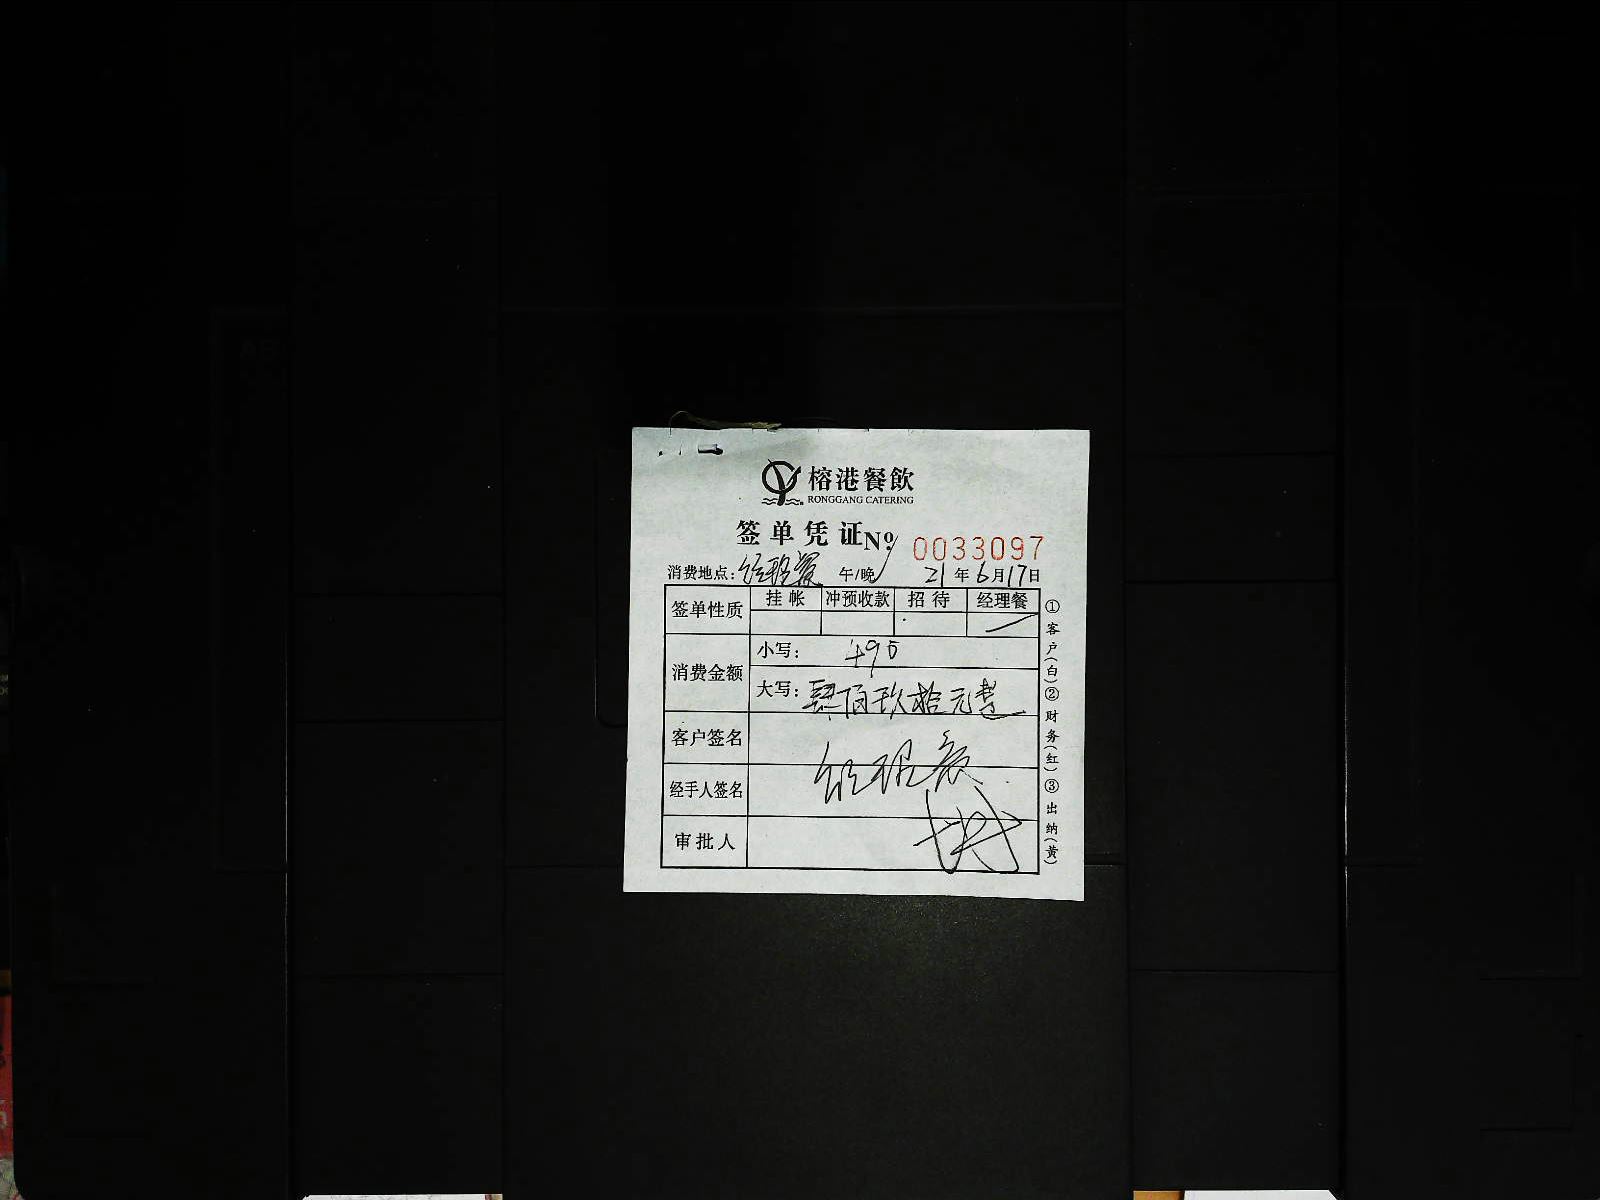 榕港餐飲
RONGGANG CATERING
签单凭证 Nº 0033097
消费地点：经理餐 午/晚 21年6月17日
签单性质 挂帐 冲预收款 招待 经理餐
消费金额 小写：490
大写：肆佰玖拾元整
客户签名
经手人签名 经理餐
审批人
①客户(白)②财务(红)③出纳(黄)